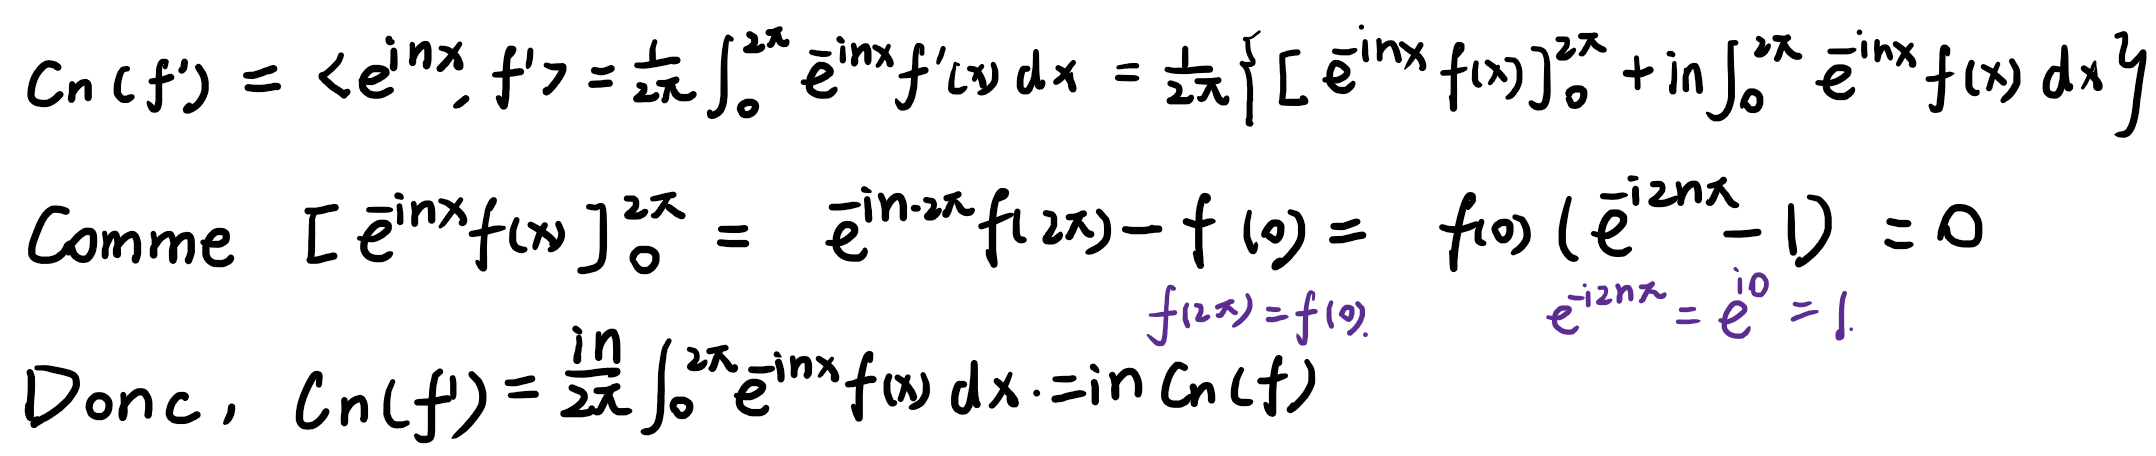 Cn(f') = <e^{inx}, f'> = \frac{1}{2π} ∫_0^{2π} e^{-inx} f'(x) dx = \frac{1}{2π} { [ e^{-inx} f(x) ]_0^{2π} + in ∫_0^{2π} e^{-inx} f(x) dx }
Comme [ e^{-inx} f(x) ]_0^{2π} = e^{-in·2π} f(2π) - f(0) = f(0) ( e^{-i2nπ} - 1 ) = 0
f(2π) = f(0). e^{-i2nπ} = e^{i0} = 1.
Donc, Cn(f') = \frac{in}{2π} ∫_0^{2π} e^{-inx} f(x) dx. = in Cn(f)